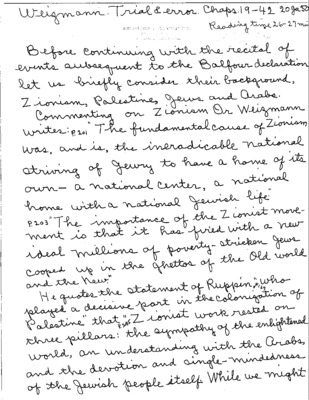 Weizmann. Trial & error. Chaps. 19-42
Reading time 26-27 min
Before continuing with the recital of
events subsequent to the Balfour declaration
let us briefly consider their background,
Zionism, Palestine, Jews and Arabs.
Commenting on Zionism Dr Weizmann
writes: p201 "The fundamental cause of Zionism
was, and is, the ineradicable national
striving of Jewry to have a home of its
own — a national center, a national
home with a national Jewish life"
p203 "The importance of the Zionist move-
ment is that it has fired with a new
ideal millions of poverty-stricken Jews
cooped up in the ghettos of the Old world
and the New."
He quotes the statement of Ruppin, "who
played a decisive part in the colonization of
Palestine" that "Zionist work rested on
three pillars: the sympathy of the enlightened
world, an understanding with the Arabs,
and the devotion and single-mindedness
of the Jewish people itself. While we might